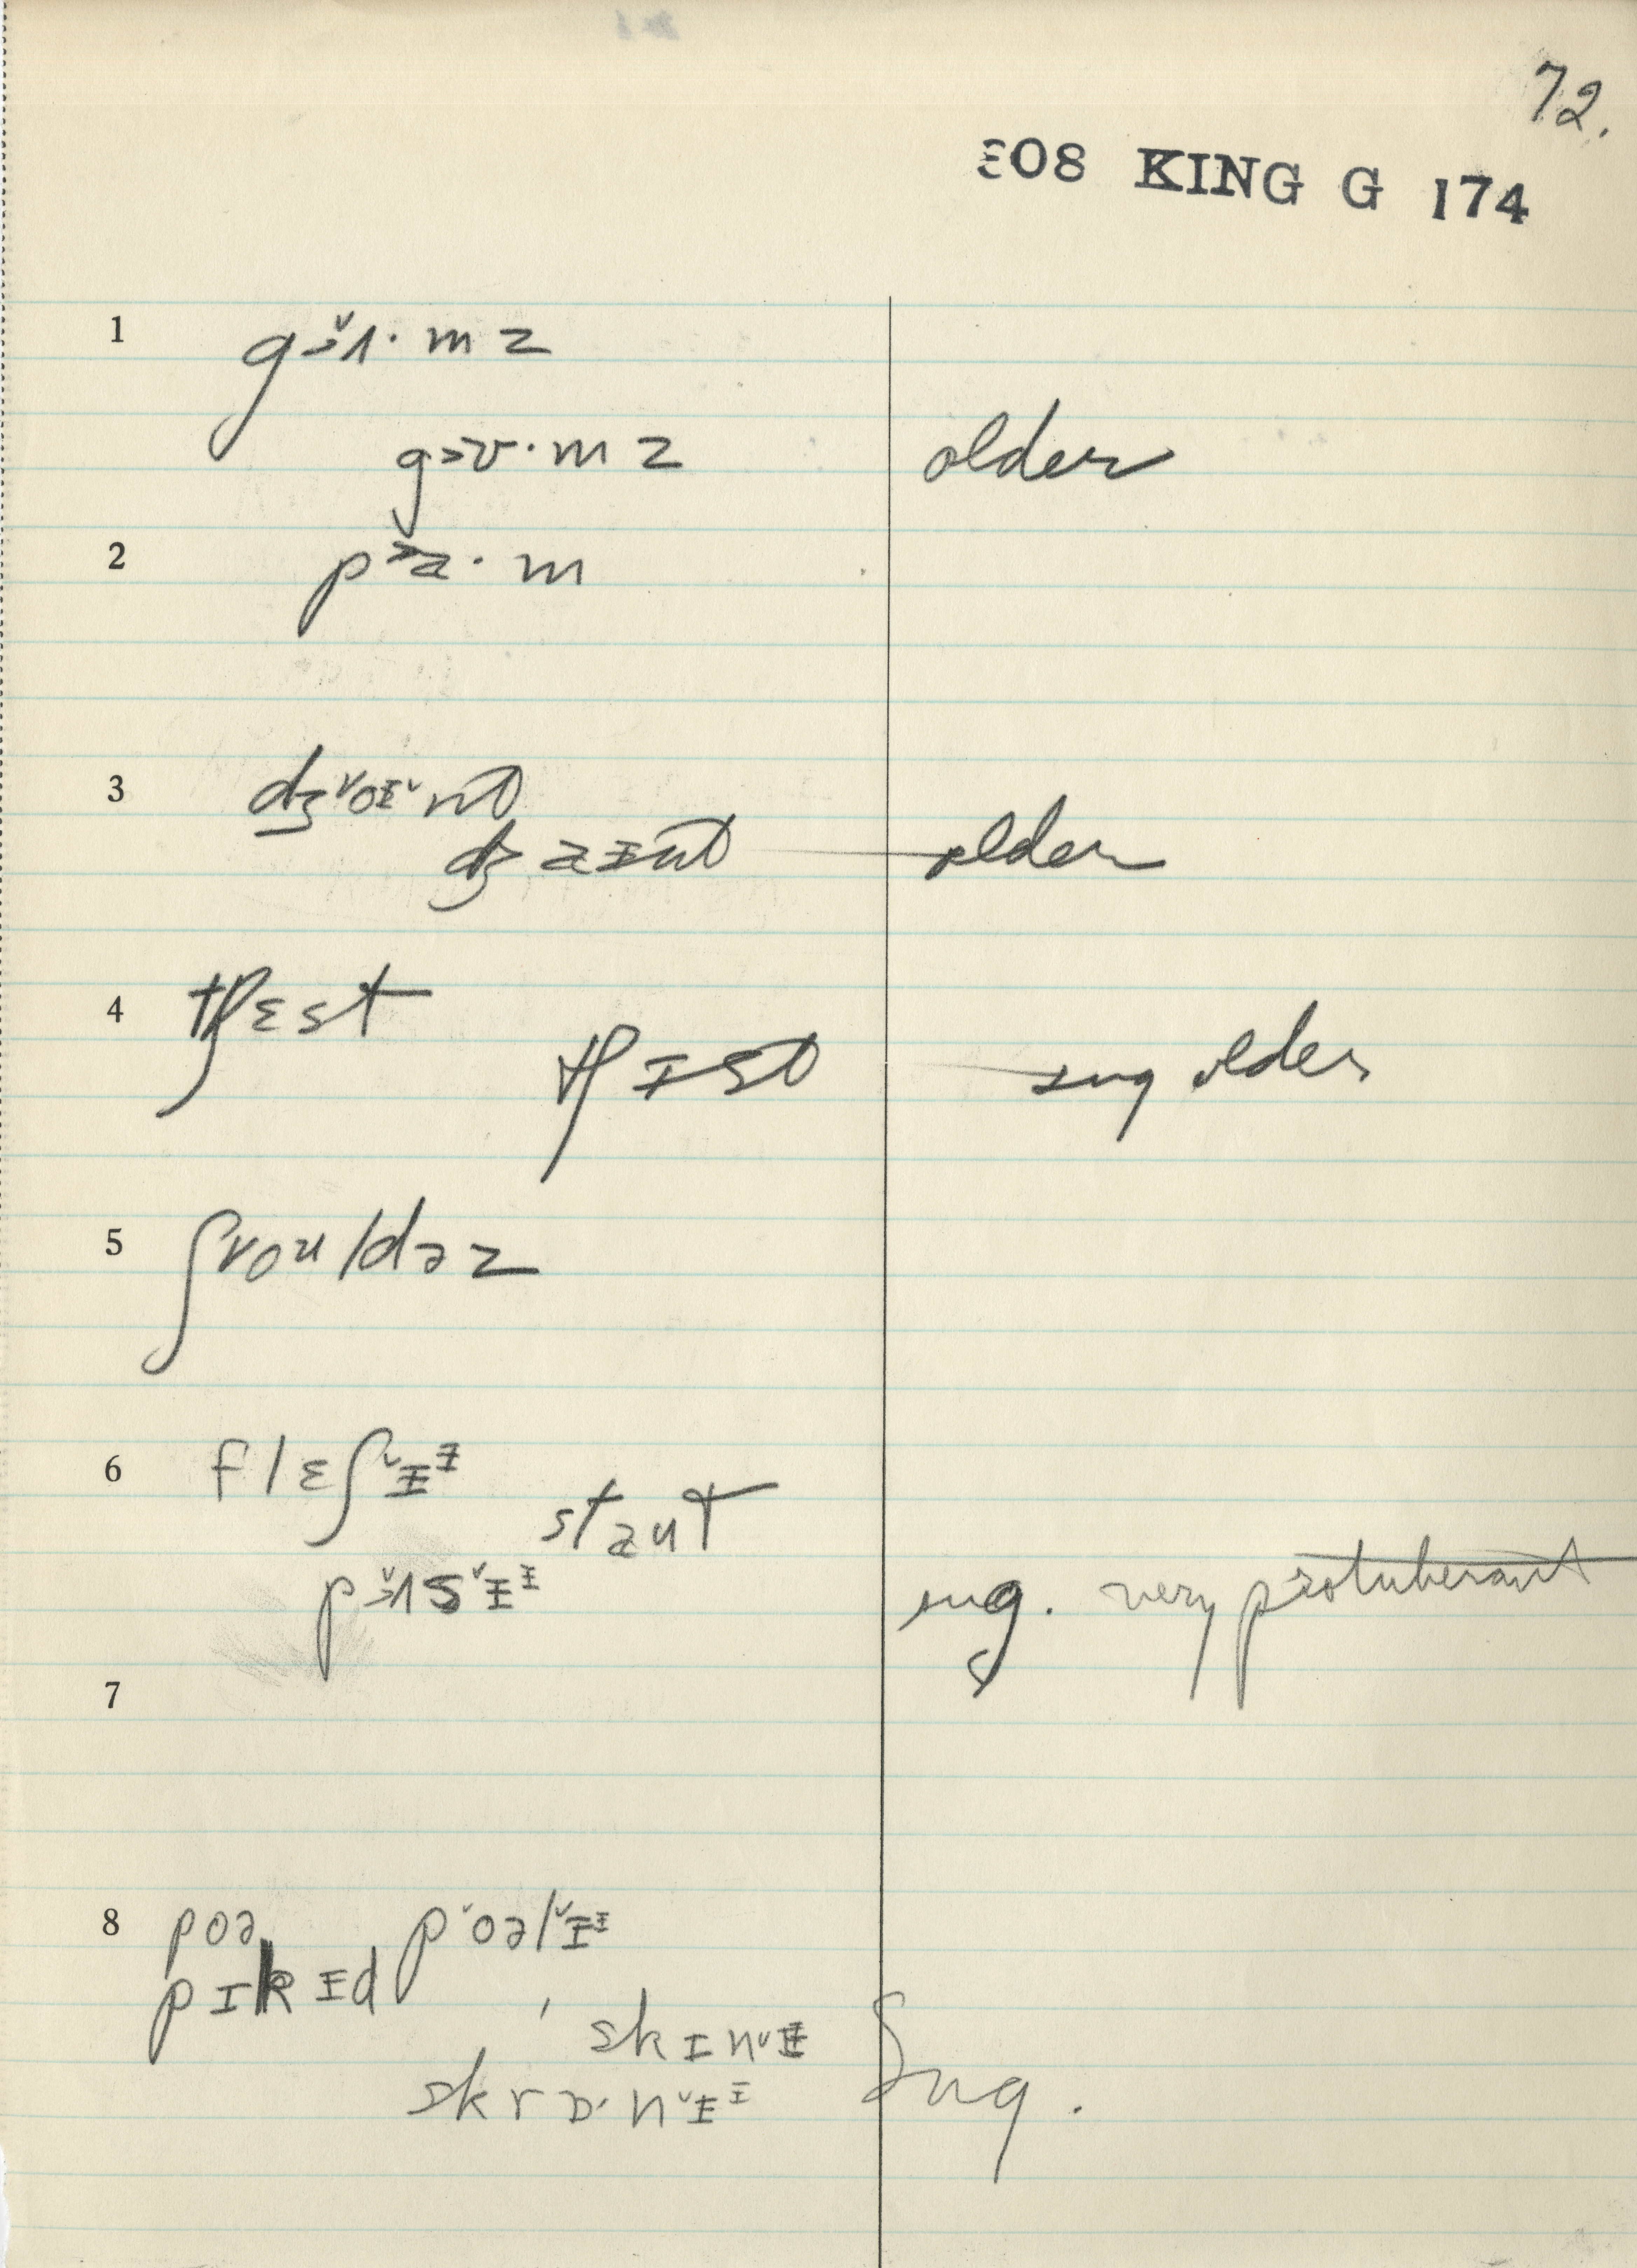 72.
E08 KING G 174
1 gɔˇʌ·mz
gɔʊ·mz older
2 pɑ·m
3 dʒˇoɪˇnt
dʒaɪnt older
4 tʃɛst
tʃɪst sug older
5 ʃˇoʊldəz
6 flɛʃˇɪɪ
staʊt
pɔˇʌsˇɪɪ sug. very protuberant
7
8 poə pˇoəlˇɪɪ
pɪkɪd
, skɪnˇɪ
skrɔ·nˇɪɪ Sug.